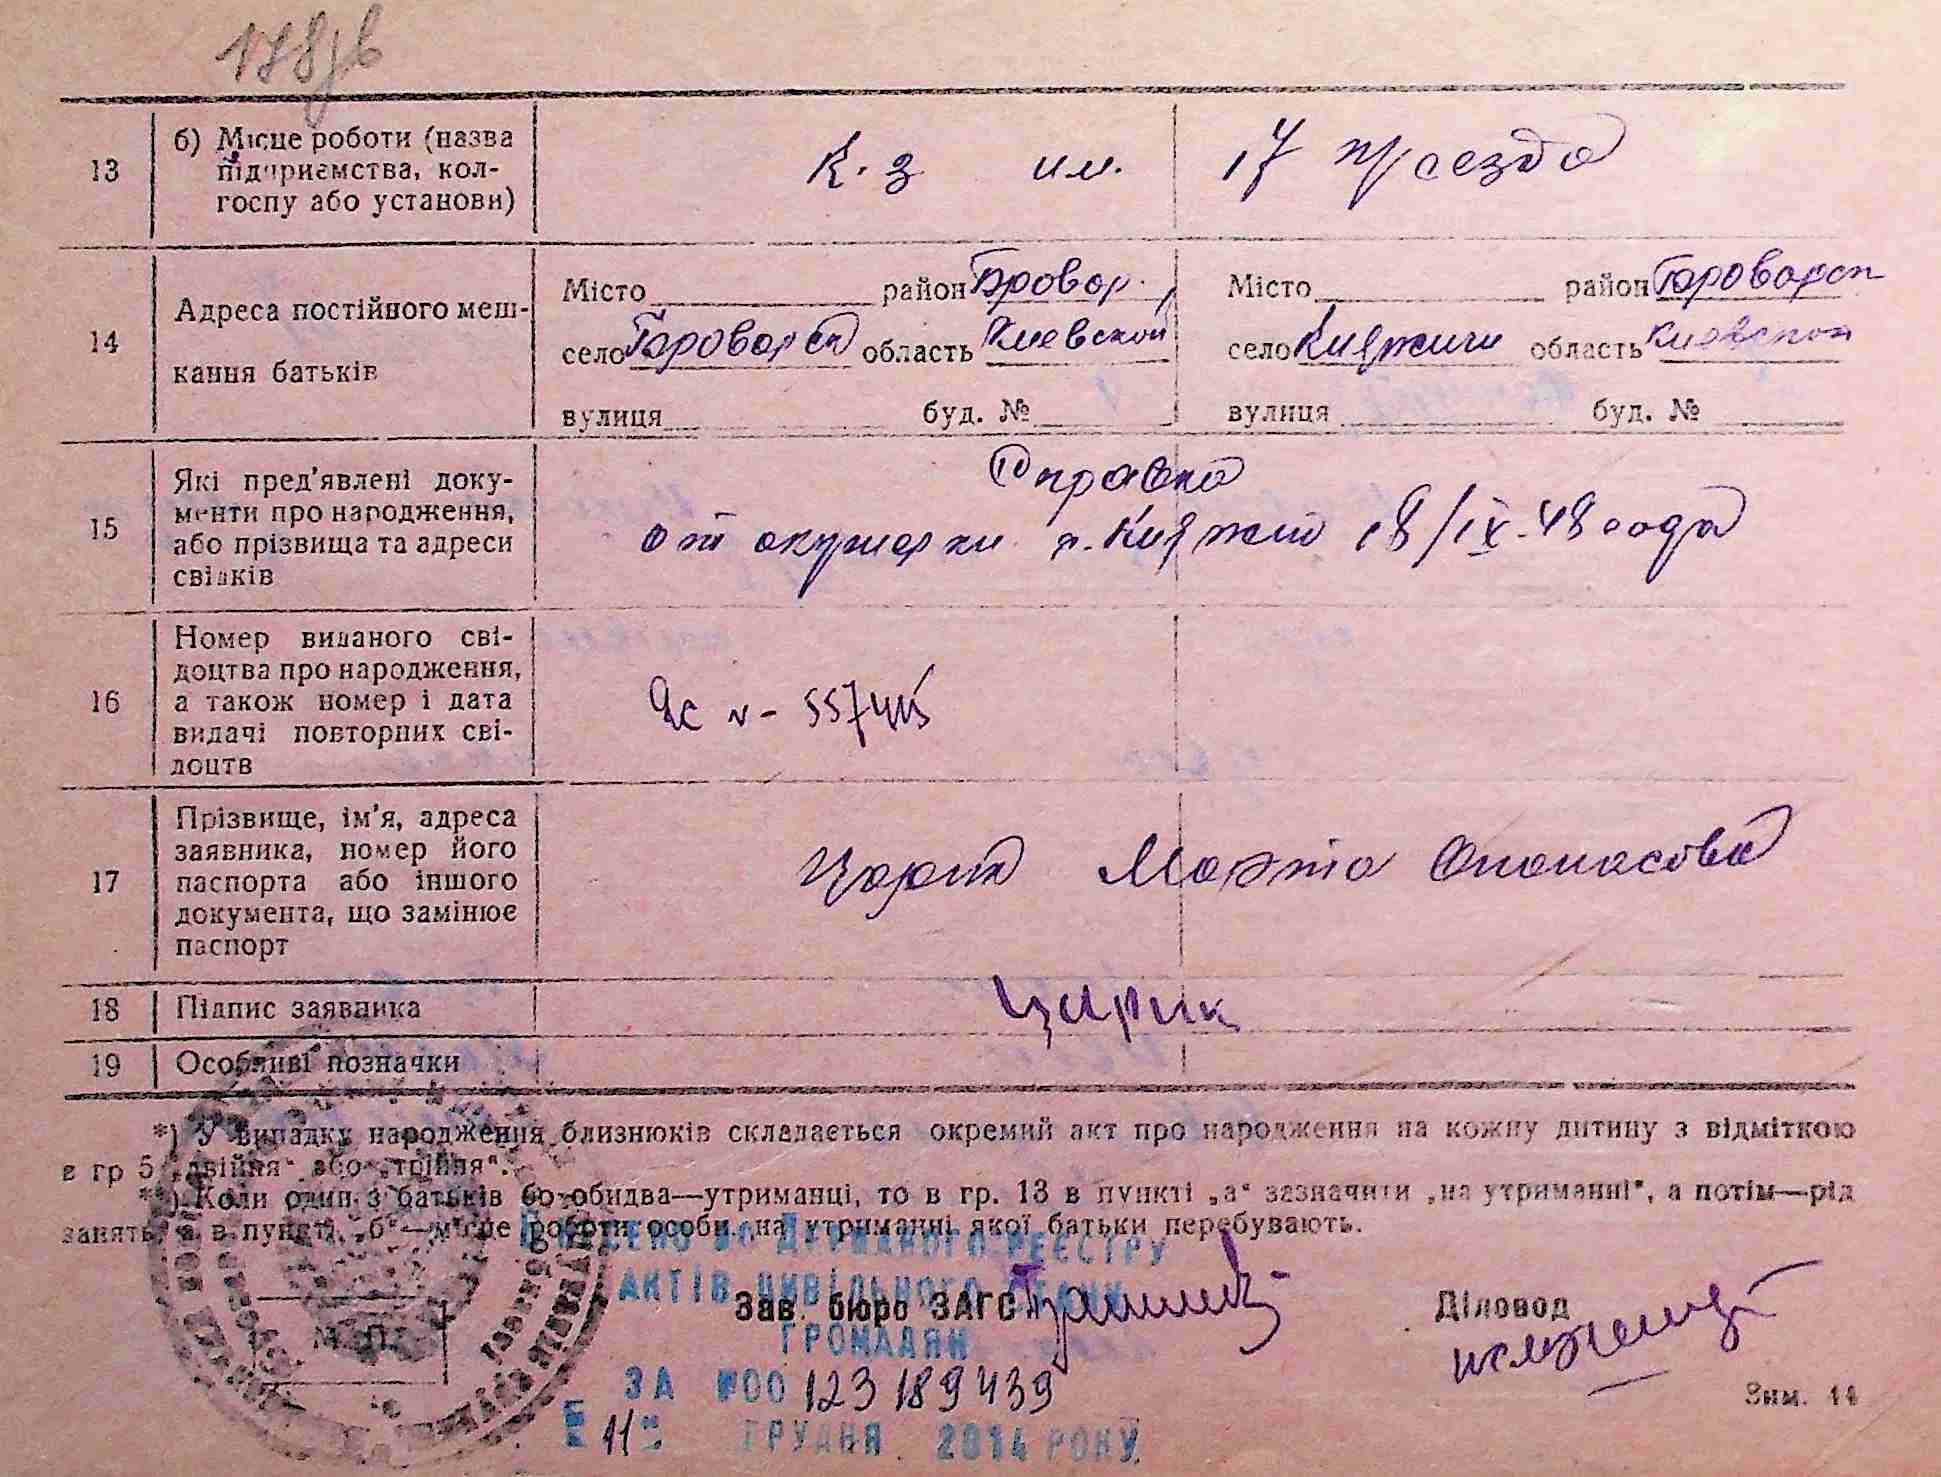 178
13
б) Місце роботи (назва
підприємства, кол-
госпу або установи)
К. з им. 17 Ппрсезда
14
Адреса постійного меш-
кання батьків
Місто район Бровар.
село область Киевской
вулиця буд. №
Місто район
село Княжичи область Киевской
вулиця буд. №
15
Які пред'явлені доку-
менти про народження,
або прізвища та адреси
свідків
Справка
от акушерки с. 18/IX-48 года
16
Номер виданого сві-
доцтва про народження,
а також номер і дата
видачі повторних сві-
доцтв
17
Прізвище, ім'я, адреса
заявника, номер його
паспорта або іншого
документа, що замінює
паспорт
Царик Марта
18
Підпис заявника
Царик
19
Особливі позначки
*) У випадку народження близнюків складається окремий акт про народження на кожну дитину з відміткою
в гр 5 „двійня" або „трійня".
**) Коли один з батьків бо обидва—утриманці, то в гр. 13 в пункті „а" зазначити „на утриманні", а потім—рід
занять, а в пункті „б"—місце роботи особи, на утриманні якої батьки перебувають.
М. П.
Зав. бюро ЗАГС
Діловод
ВНЕСЕНО ДО ДЕРЖАВНОГО РЕЄСТРУ
АКТІВ ЦИВІЛЬНОГО СТАНУ
ГРОМАДЯН
ЗА №00123189439
11 ГРУДНЯ 2014 РОКУ.
Зим. 14